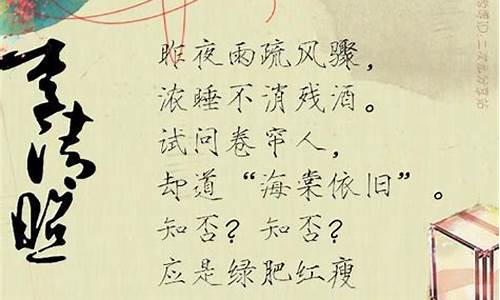 李清照
昨夜雨疏风骤，
浓睡不消残酒。
试问卷帘人，
却道“海棠依旧”。
知否？知否？
应是绿肥红瘦